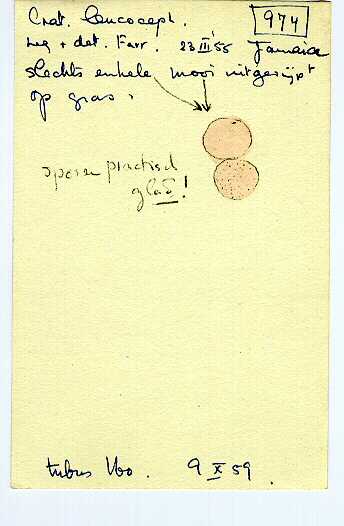 Crat. leucoceph.
974
Leg + det. Farr. 23 III 55 Jamaica
slechts enkele mooi uitgerijpt
op gras.
sporen practisch
glad!
tubus Vbo. 9 X 59.